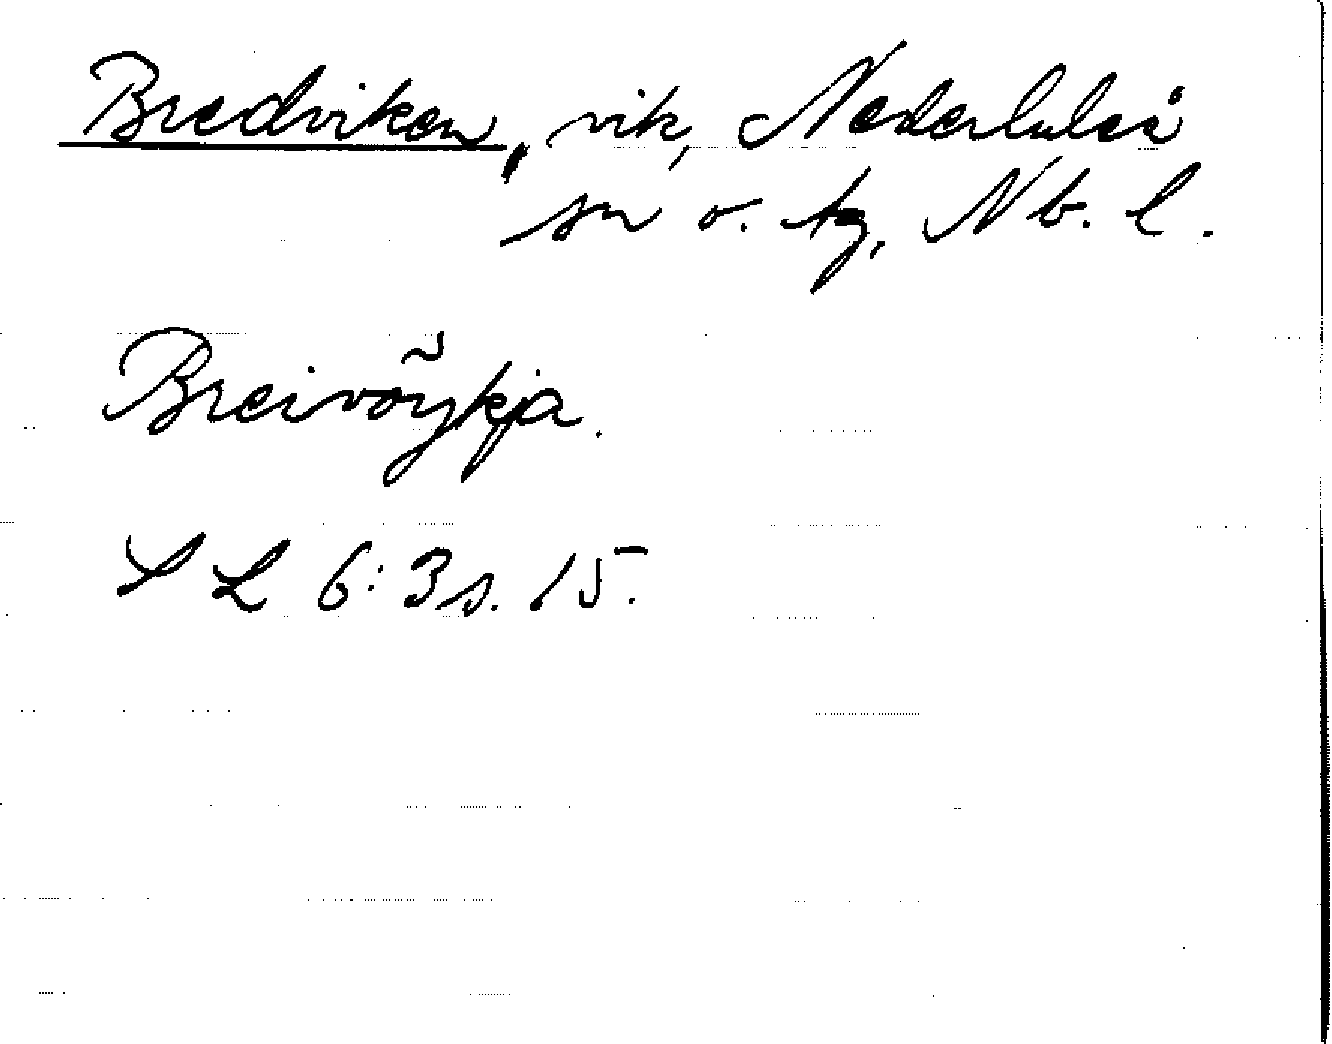 Bredviken, vik, Nederluleå
sn o. tg, Nb. l.
Breivöỹkja.
S L 6:3 s. 15.